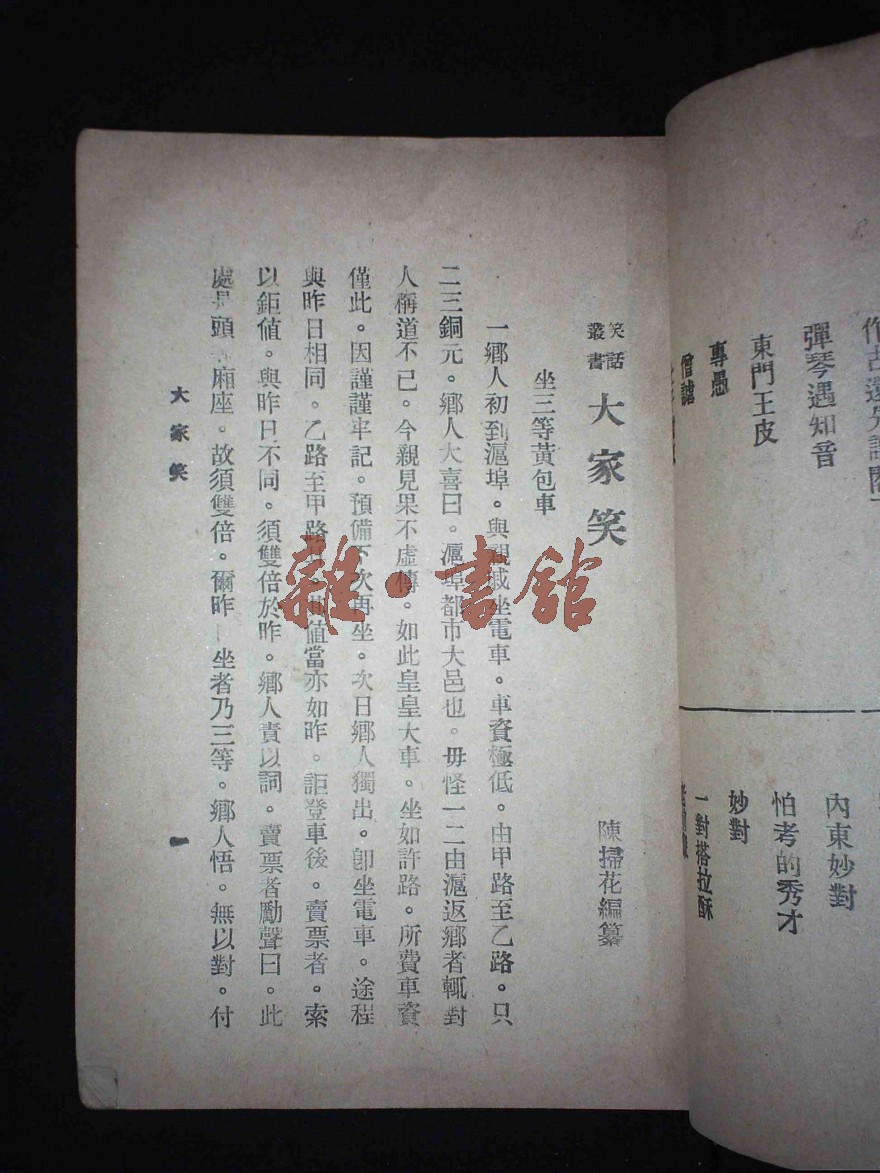 作古還先認閻
彈琴遇知音
東門王皮
專愚
僧謔
內東妙對
怕考的秀才
妙對
一對搭拉酥
笑話叢書 大家笑
陳掃花編纂
坐三等黃包車
一鄉人初到滬埠。與親戚坐電車。車資極低。由甲路至乙路。只
二三銅元。鄉人大喜曰。滬埠都市大邑也。毋怪一二由滬返鄉者輒對
人稱道不已。今親見果不虛傳。如此皇皇大車。坐如許路。所費車資
僅此。因謹謹牢記。預備下次再坐。次日鄉人獨出。卽坐電車。途程
與昨日相同。乙路至甲路 值當亦如昨。詎登車後。賣票者。索
以鉅值。與昨日不同。須雙倍於昨。鄉人責以詞。賣票者勵聲曰。此
處是頭等廂座。故須雙倍。爾昨日坐者乃三等。鄉人悟。無以對。付
大家笑
一
雜·書館